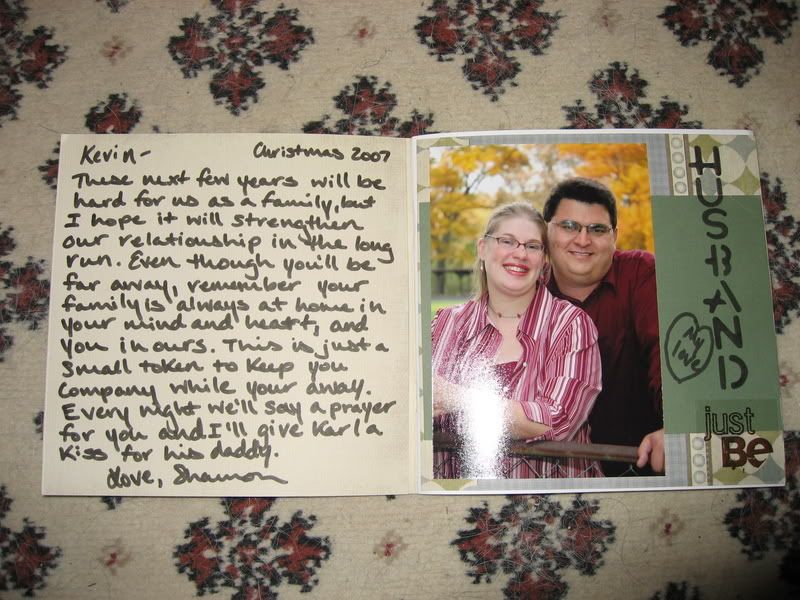 Kevin- Christmas 2007
These next few years will be
hard for us as a family, but
I hope it will strengthen
our relationship in the long
run. Even though you'll be
far away, remember your
family is always at home in
your mind and heart, and
you in ours. This is just a
small token to keep you
company while your away.
Every night we'll say a prayer
for you and I'll give Karl a
kiss for his daddy.
Love, Shannon
HUSBAND
just
Be